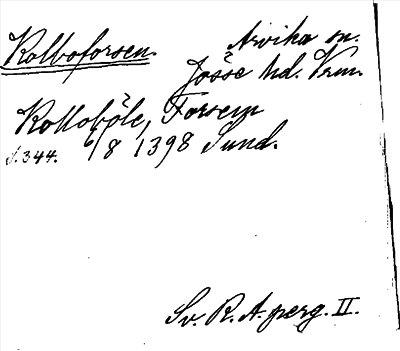 Kolboforsen.
Arvika sn.
Jösse hd. Vrm.
Kolloböle, Forsem
s. 344. 6/8 1398 Sund.
Sv. R. A. perg. II.